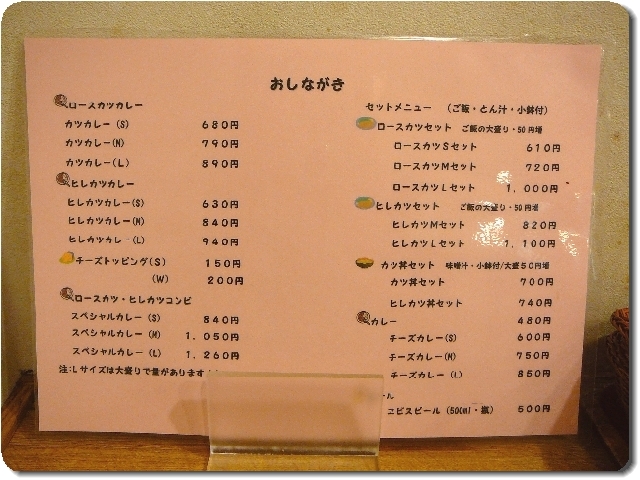 おしながき
ロースカツカレー
カツカレー(S) 680円
カツカレー(M) 790円
カツカレー(L) 890円
ヒレカツカレー
ヒレカツカレー(S) 630円
ヒレカツカレー(M) 840円
ヒレカツカレー(L) 940円
チーズトッピング(S) 150円
(W) 200円
ロースカツ・ヒレカツコンビ
スペシャルカレー(S) 840円
スペシャルカレー(M) 1,050円
スペシャルカレー(L) 1,260円
注:Lサイズは大盛りで量があります
セットメニュー (ご飯・とん汁・小鉢付)
ロースカツセット ご飯の大盛り・50円増
ロースカツSセット 610円
ロースカツMセット 720円
ロースカツLセット 1,000円
ヒレカツセット ご飯の大盛り・50円増
ヒレカツMセット 820円
ヒレカツLセット 1,100円
カツ丼セット 味噌汁・小鉢付/大盛50円増
カツ丼セット 700円
ヒレカツ丼セット 740円
カレー 480円
チーズカレー(S) 600円
チーズカレー(M) 750円
チーズカレー(L) 850円
ール
ヱビスビール(500ml・瓶) 500円